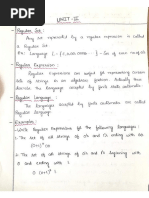 UNIT-II
Regular Set:
Any set represented by a regular expression is called
a Regular Set.
Regular Expression:
Regular Expressions are useful for representing certain
sets of strings in an algebraic fashion. Actually these
describe the language accepted by finite state automata.
Regular Language:
The languages accepted by finite automata are called
Regular Language.
Examples:
Write Regular Expression for the following languages:
1. The set of all strings of 0's and 1's ending with
2. The set of all strings of 0's and 1's beginning with
0 and ending with 1